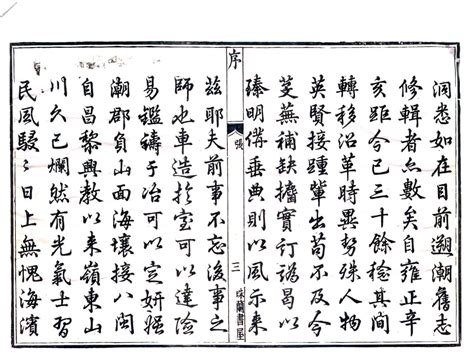 洞悉如在目前溯潮舊志
修輯者亦數矣自雍正辛
亥距今已三十餘稔其間
轉移沿革時異勢殊人物
英賢接踵輩出苟不及今
芟蕪補缺摭實訂訛曷以
臻明備垂典則以風示來
序
張
三
珠蘭書屋
茲耶夫前事不忘後事之
師也車造於室可以達險
易鑑鑄于冶可以定妍媸
潮郡負山面海壤接八閩
自昌黎興教以來嶺東山
川久已爛然有光氣士習
民風駸〻日上無愧海濱